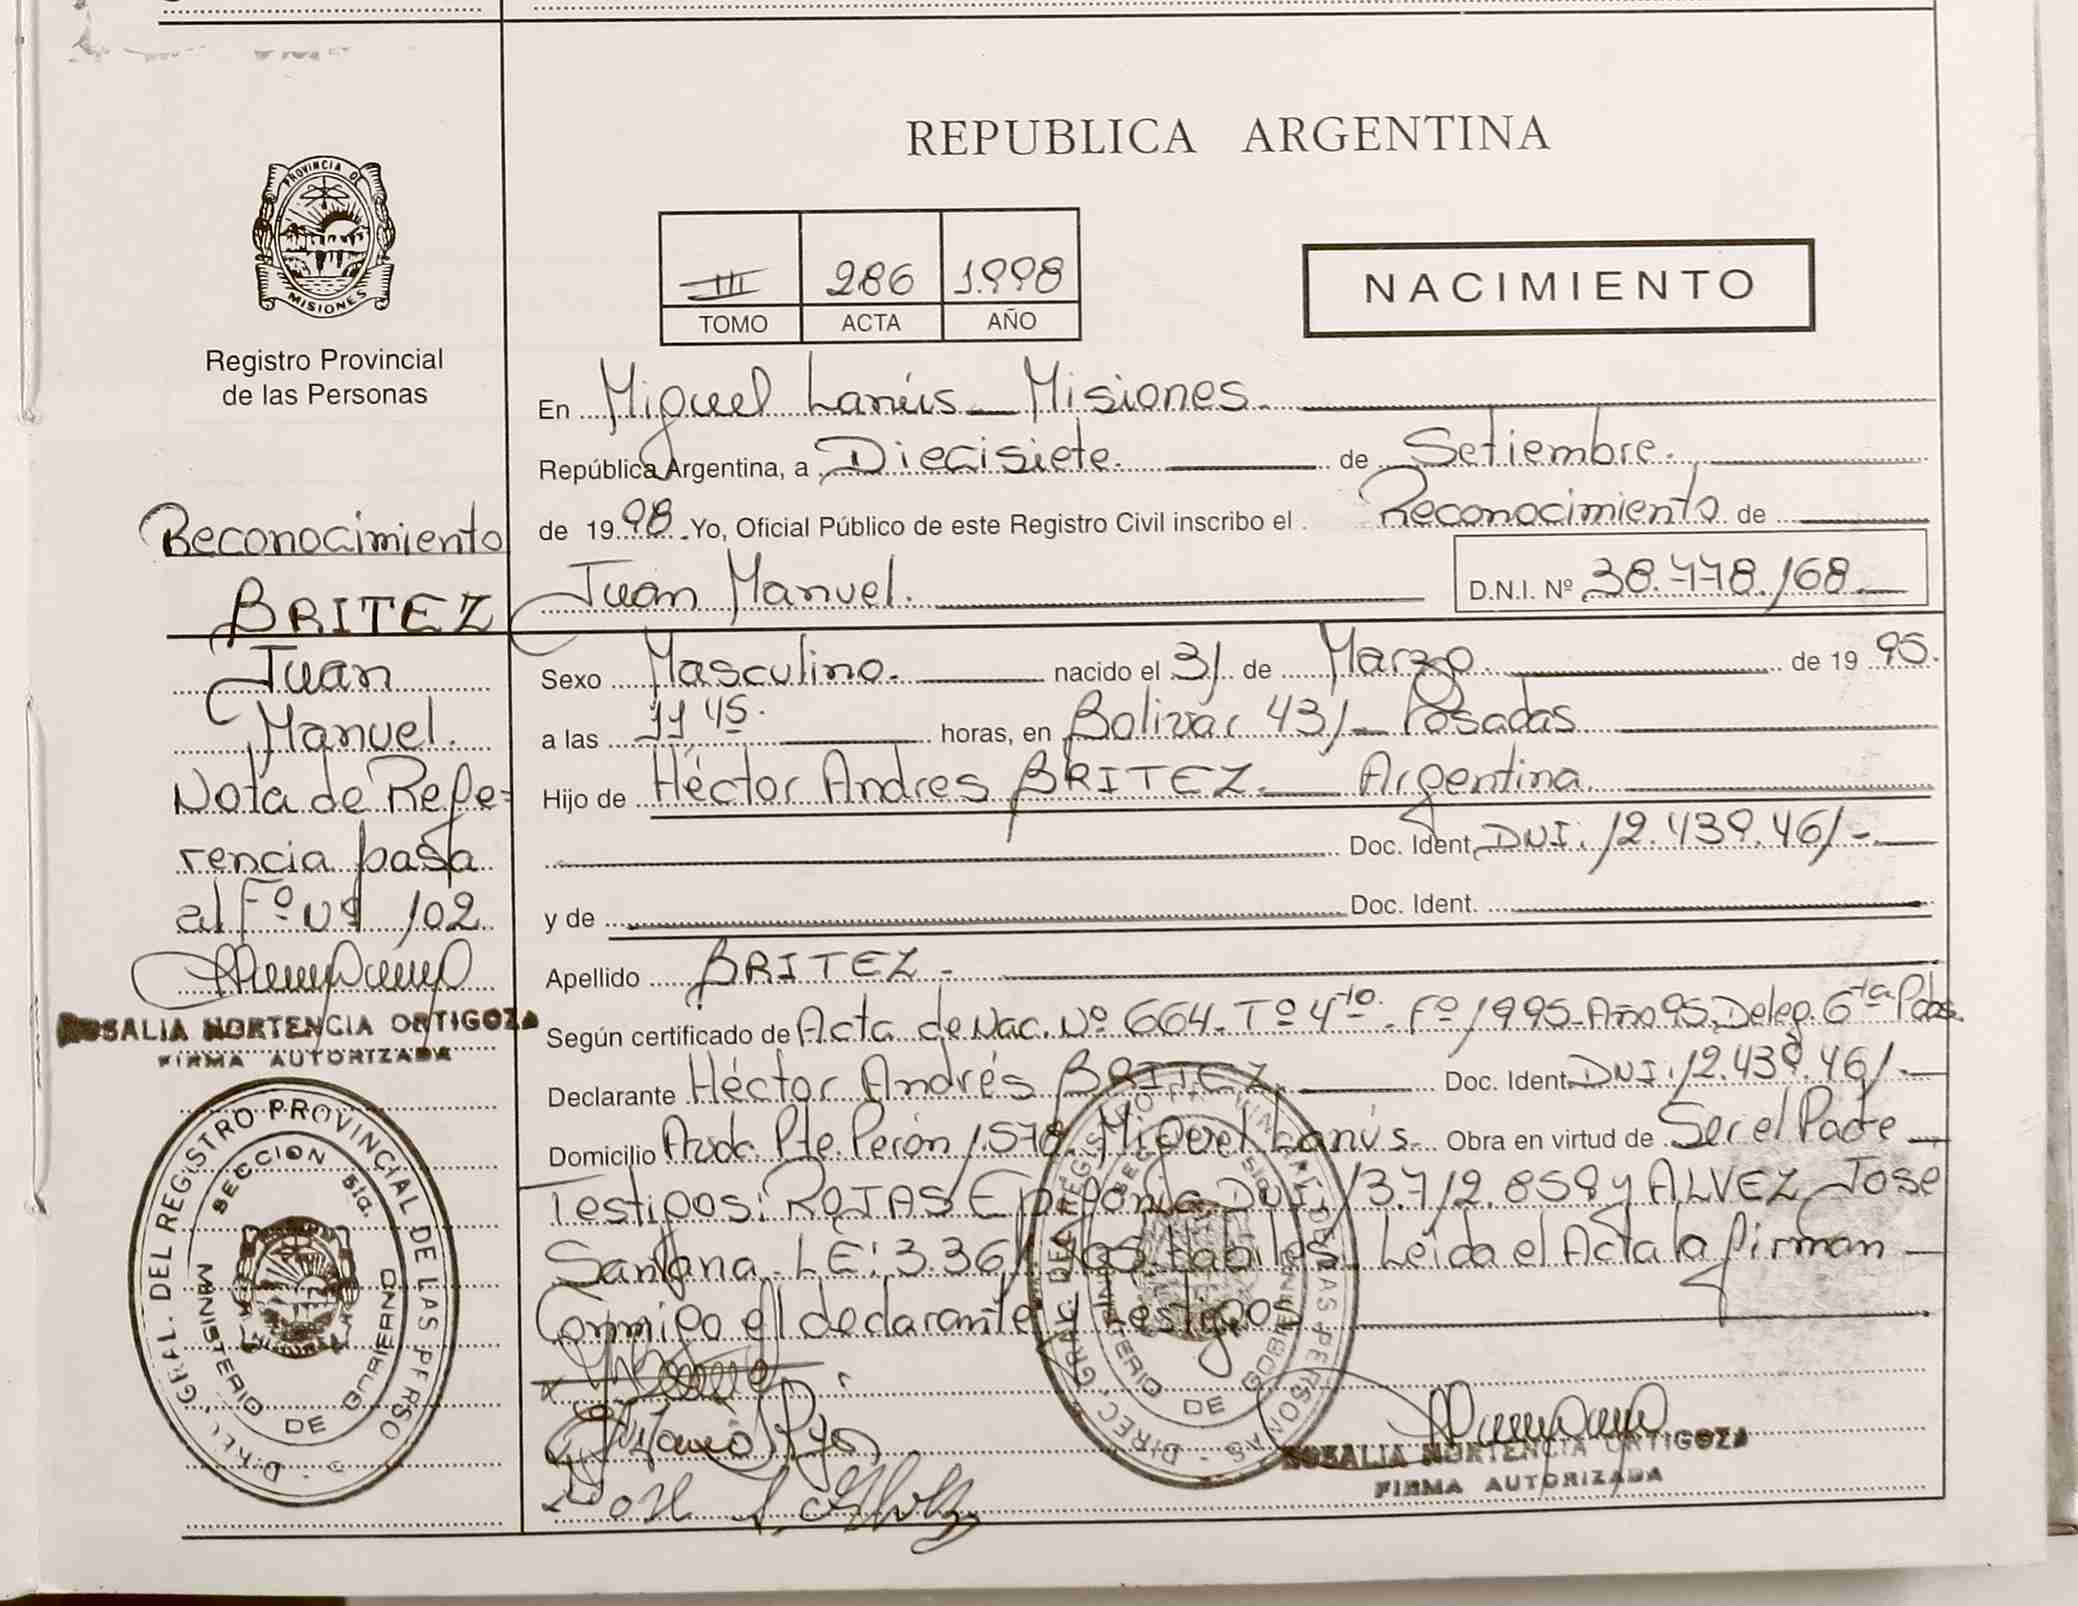 REPUBLICA ARGENTINA
PROVINCIA DE
MISIONES
Registro Provincial
de las Personas
III 286 1.998
TOMO ACTA AÑO
NACIMIENTO
En Miguel Lanús - Misiones.
República Argentina, a Diecisiete. de Setiembre.
de 19 98 Yo, Oficial Público de este Registro Civil inscribo el Reconocimiento de
Juan Manuel. D.N.I. Nº 38.778.168
Sexo Masculino. nacido el 31 de Marzo de 19 95.
a las 11 45. horas, en Bolivar 431 - Posadas
Hijo de Héctor Andres BRITEZ. Argentina.
Doc. Ident. DNI. 12.439.461-.
y de Doc. Ident.
Apellido BRITEZ.
Según certificado de Acta de Nac. Nº 664. Tº 4to. Fº 1995. Año 95. Deleg. 6ta Pdas.
Declarante Héctor Andrés BRITEZ. Doc. Ident. DNI. 12.439.461-.
Domicilio Avda. Pte. Perón 1.578. Miguel Lanús. Obra en virtud de Ser el Padre
Testigos: ROJAS Epifania DNI. 13.712.859 y ALVEZ Jose
Santana LE: 3.361. habiles. Leída el Acta la firman
Conmigo el declarante y testigos
ROSALIA HORTENCIA ORTIGOZA
FIRMA AUTORIZADA
Reconocimiento
BRITEZ
Juan
Manuel.
Nota de Refe-
rencia pasa
al Fº Nº 102
ROSALIA HORTENCIA ORTIGOZA
FIRMA AUTORIZADA
DIREC. GRAL. DEL REGISTRO PROVINCIAL DE LAS PERSO
SECCION 5ta.
MINISTERIO DE GOBIERNO
DIREC. GRAL. DEL REGISTRO PROVINCIAL DE LAS PERSONAS